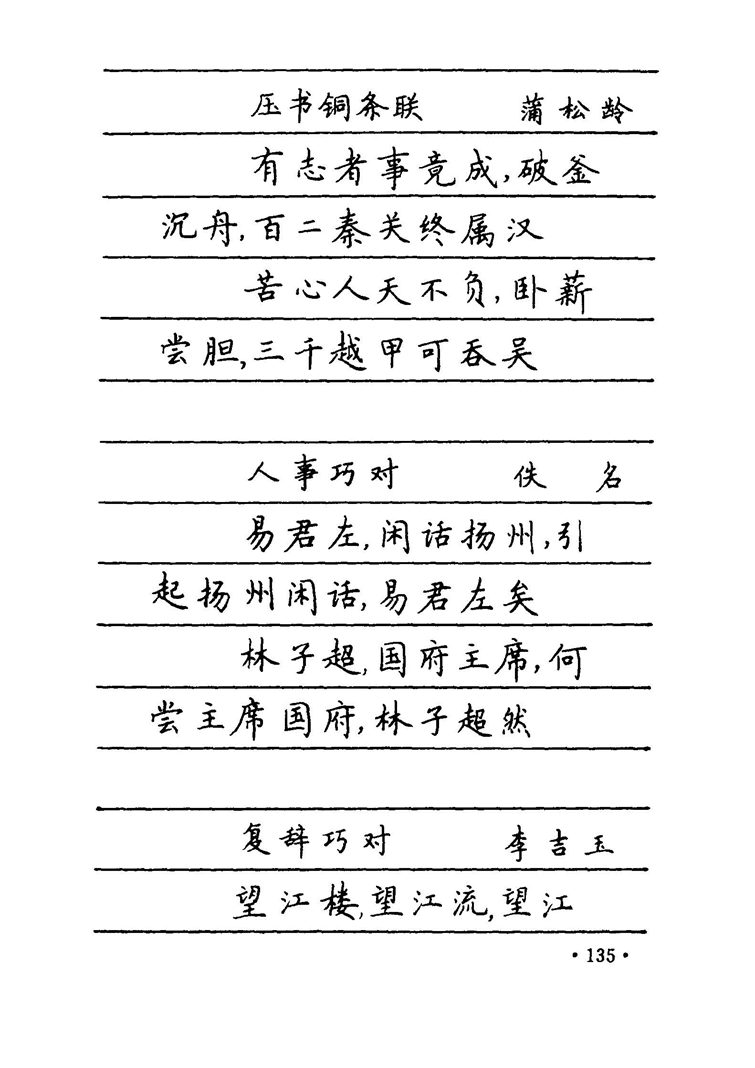 压书铜条联 蒲松龄
有志者事竟成,破釜
沉舟,百二秦关终属汉
苦心人天不负,卧薪
尝胆,三千越甲可吞吴
人事巧对 佚 名
易君左,闲话扬州,引
起扬州闲话,易君左矣
林子超,国府主席,何
尝主席国府,林子超然
复辞巧对 李吉玉
望江楼,望江流,望江
·135·